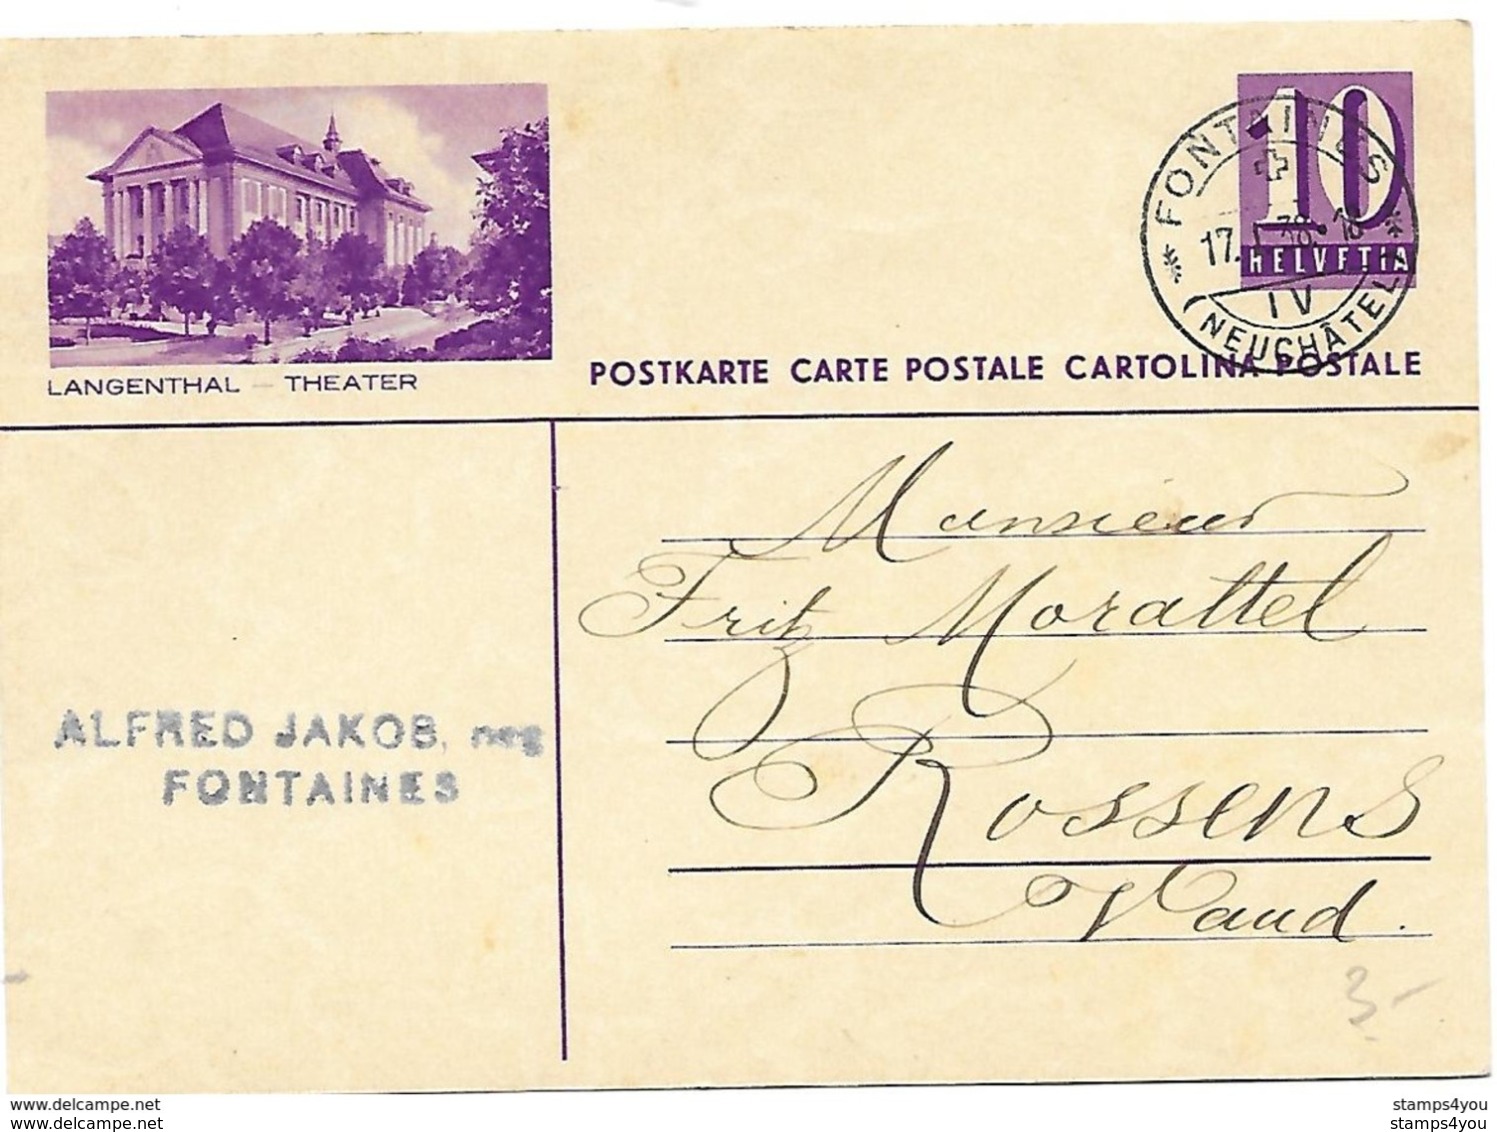 10
HELVETIA
FONTAINES
17. I. 38. 18
IV
(NEUCHÂTEL)
LANGENTHAL – THEATER
POSTKARTE CARTE POSTALE CARTOLINA POSTALE
Monsieur
Fritz Morattel
Rossens
Vaud.
ALFRED JAKOB, neg
FONTAINES
3.-
delcampe.net
delcampe.net
stamps4you
stamps4you